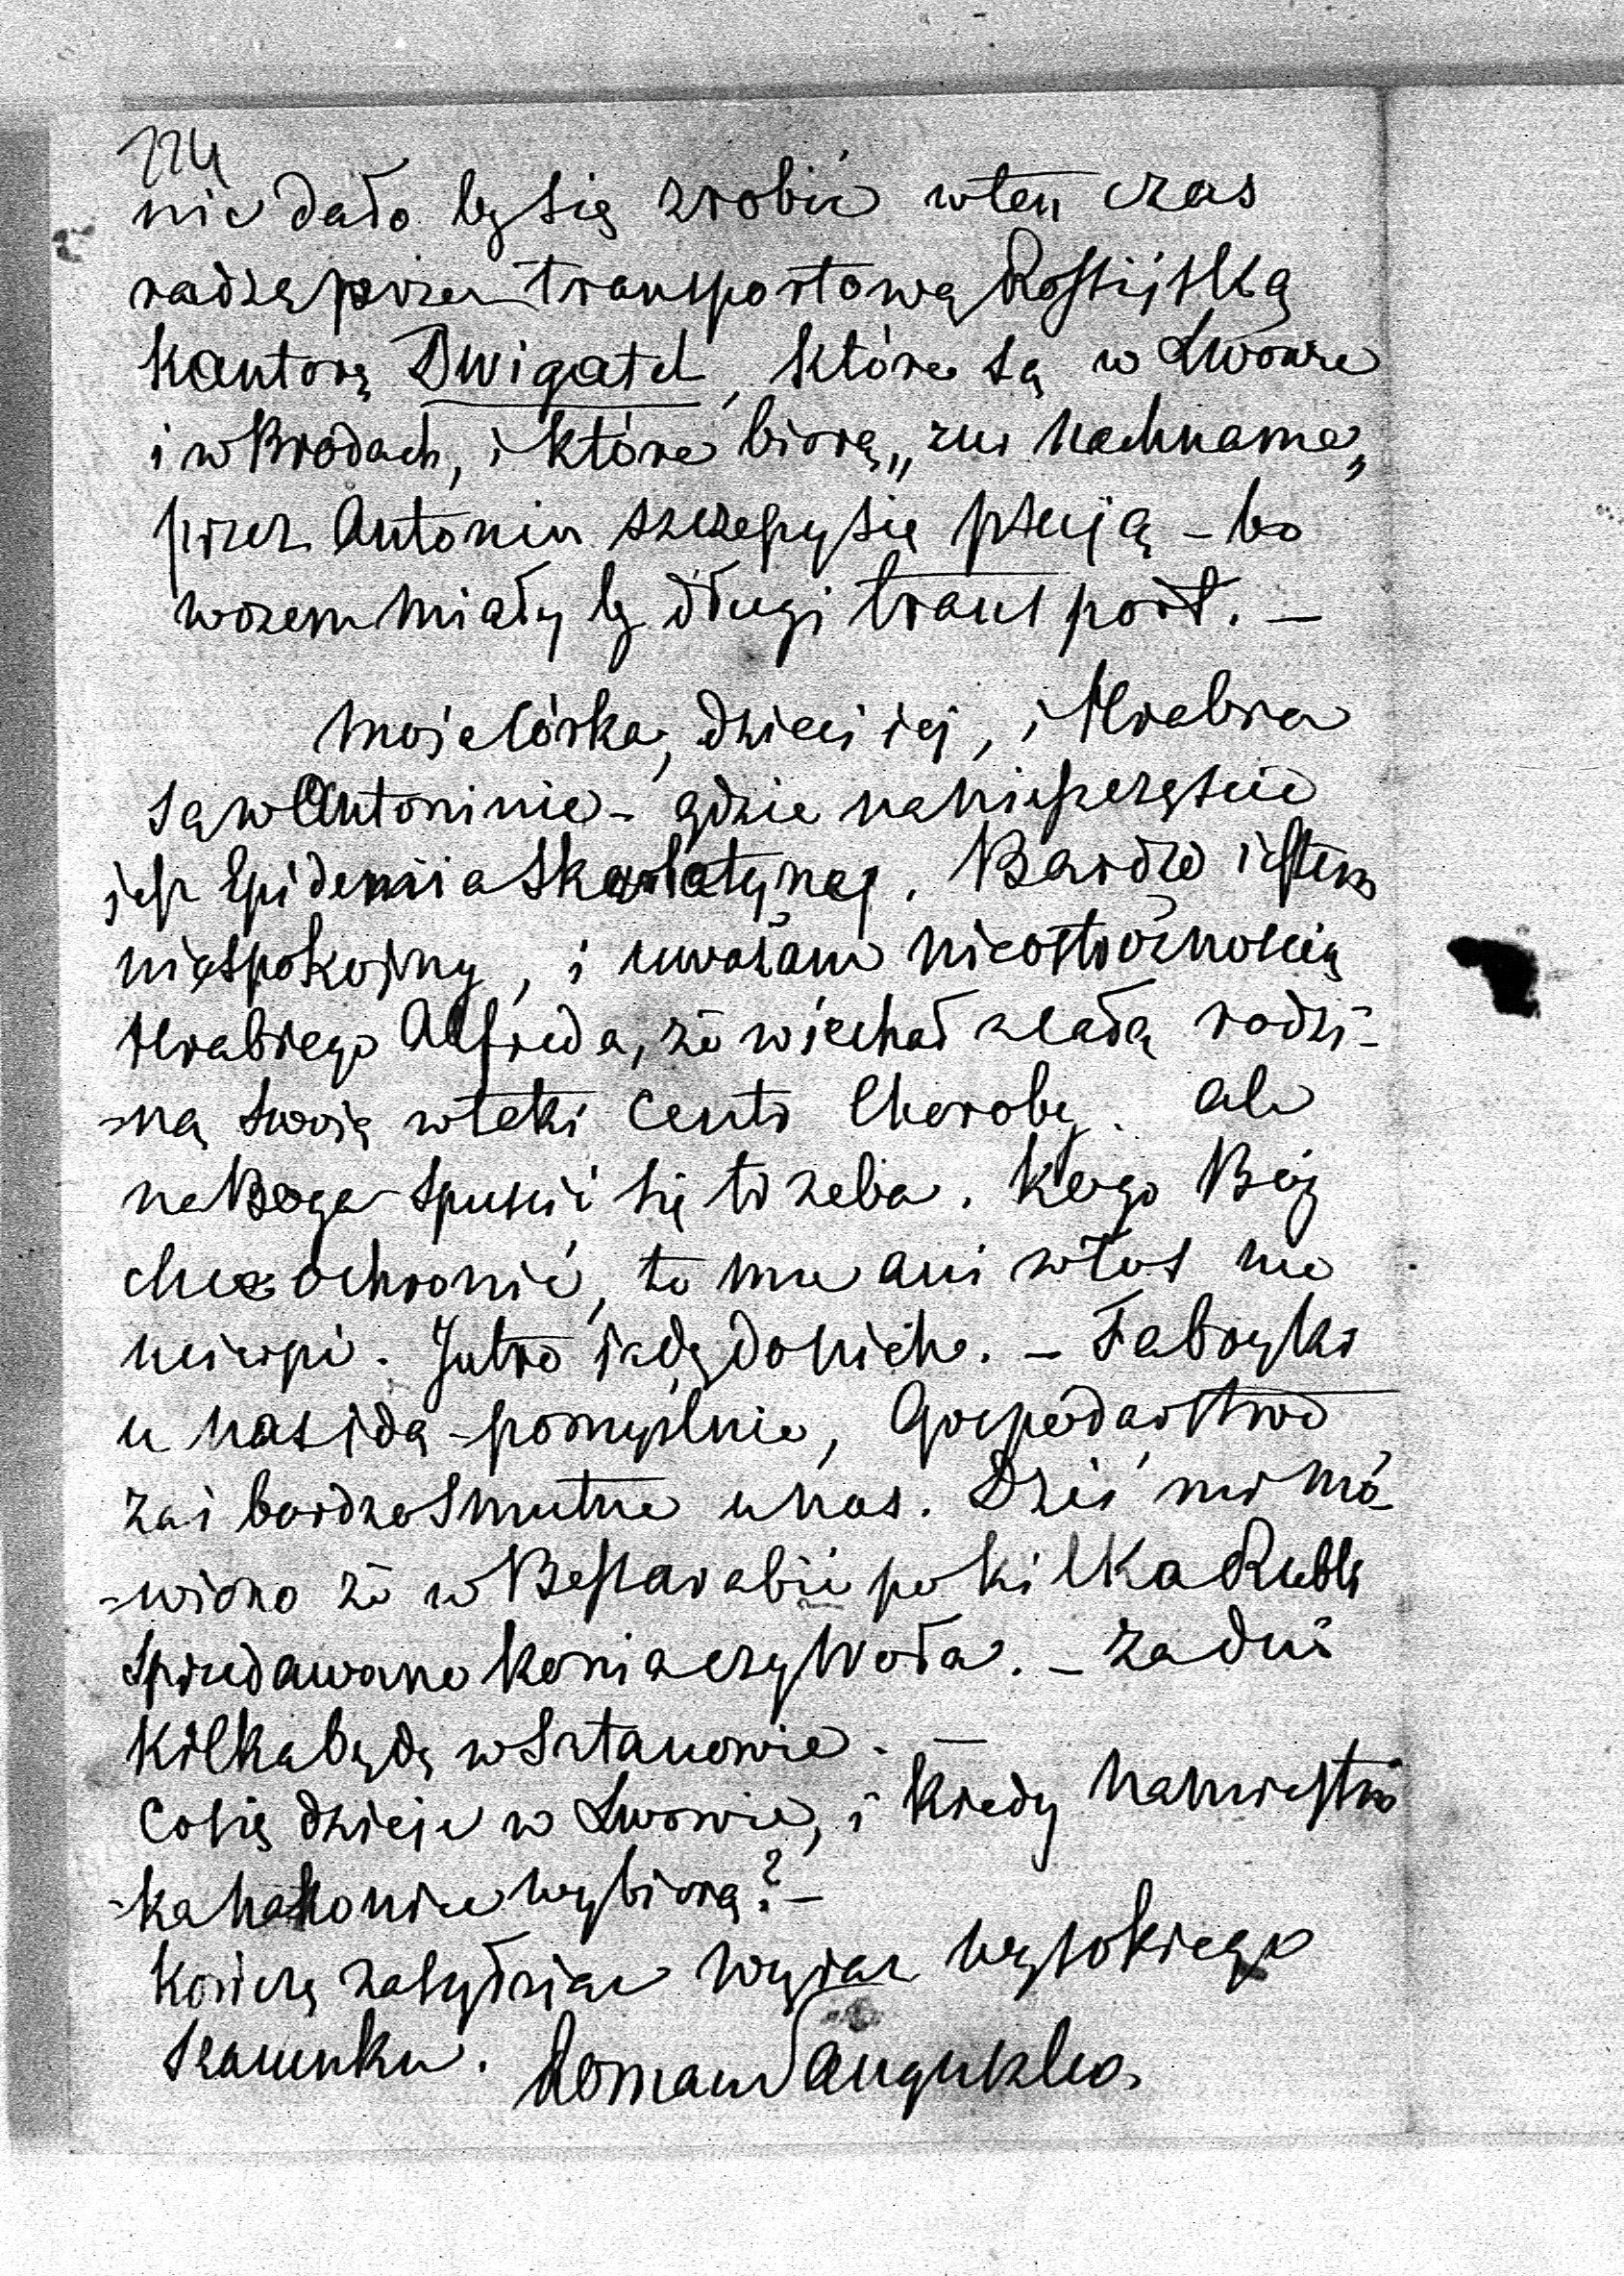 224
nie dało by się zrobić w ten czas
radzę przez transportową Rossijską
Kantorę Dwigatel, które są w Lwowie
i w Brodach, i które biorą „zur Nachname„
przez Antonin szczepy się psują – bo
wozem miały by długi transport. –
Moja Córka, dzieci iej, i Hrabia
są w Antoninie – gdzie na nieszczęście
jest Epidemiia Skarlatyny. Bardzo iestem
niespokojny, i uważam nieostrożnością
Hrabiego Alfreda, że wiechał z całą rodzi-
-ną swoją w taki centr Choroby. ale
na Boga spuścić się trzeba. Kogo Bóg
chce ochronić, to mu ani włos nie
ucierpi. Jutro jadę do nich. – Fabryki
u nas idą pomyślnie, Gospodarstwo
zaś bardzo smutne u nas. Dziś mi mó-
-wiono że w Bessarabii po kilka Rubli
sprzedawano konia czy woła. – Za dni
kilka będę w Sztanowie. –
Co się dzieje w Lwowie, i kiedy Namiestni-
-ka na koniec wybiorą? –
Kończę zasyłając wyraz wysokiego
szacunku. Roman Sanguszko.